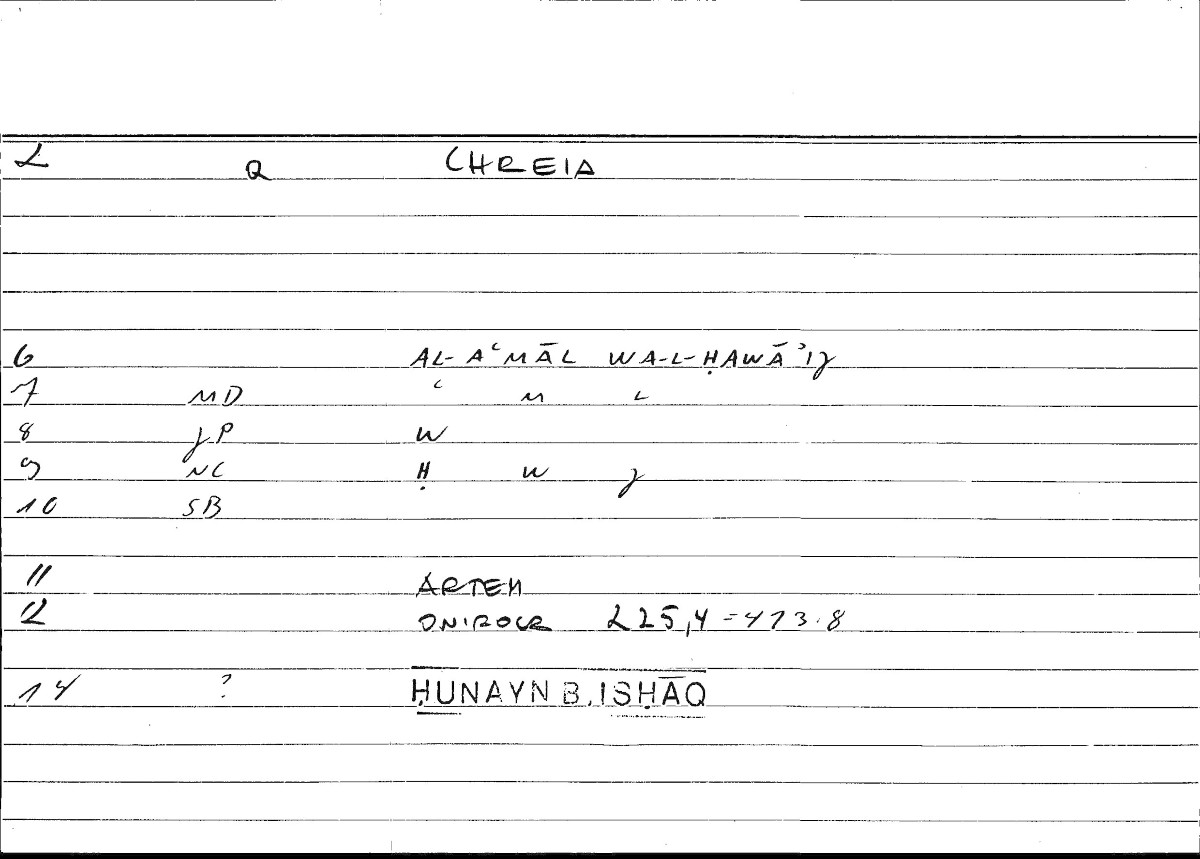 2 Q CHREIA
6 AL-AʿMĀL WA-L-ḤAWĀʾIJ
7 MD ʿ M L
8 JP W
9 NC Ḥ W J
10 SB
11 ARTEM
12 ONIROCR 225,4=473.8
14 ? ḤUNAYN B. ISḤĀQ